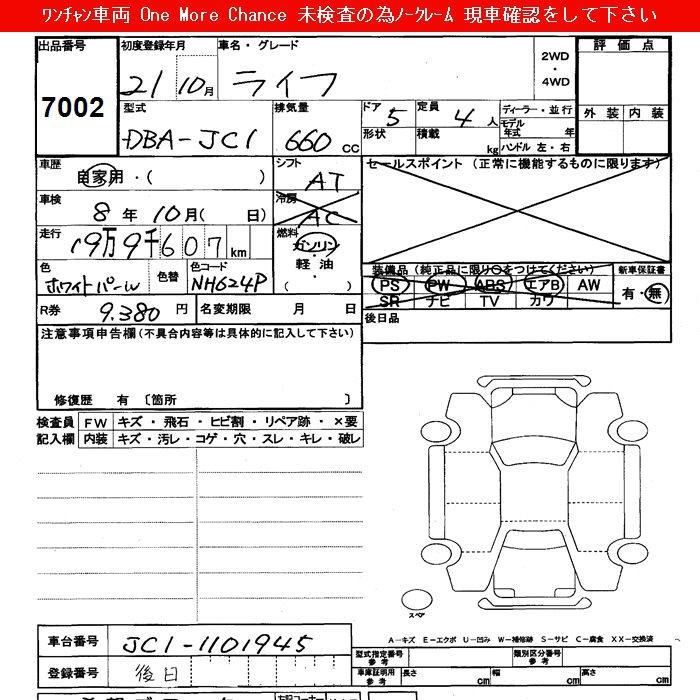 ワンチャン車両 One More Chance 未検査の為ノークレーム 現車確認をして下さい
出品番号 初度登録年月 車名・グレード 2WD・4WD 評価点
7002 21 10月 ライフ
型式 排気量 ドア 5 定員 4人 ディーラー・並行 外装 内装
DBA-JC1 660cc 形状 積載 kg モデル年式 年
ハンドル 左・右
車歴 自家用・( ) シフト AT セールスポイント (正常に機能するものに限ります)
車検 8年 10月( 日) 冷房 AC
走行 19万9千607km 燃料 ガソリン 軽油 ( )
色 ホワイトパール 色替 色コード NH624P
装備品 (純正品に限り○をつけてください) 新車保証書
PS PW ABS エアB AW 有・無
SR ナビ TV カワ
R券 9.380円 名変期限 月 日 後日品
注意事項申告欄(不具合内容等は具体的に記入して下さい)
修復歴 有 〔箇所 〕
検査員 FW キズ・飛石・ヒビ割・リペア跡・×要
記入欄 内装 キズ・汚レ・コゲ・穴・スレ・キレ・破レ
スペア
A-キズ E-エクボ U-凹み W-補修跡 S-サビ C-腐食 XX-交換済
車台番号 JC1-1101945
型式指定番号 参考 類別区分番号 参考
登録番号 後日
車庫証明用 参考 長さ cm 幅 cm 高さ cm